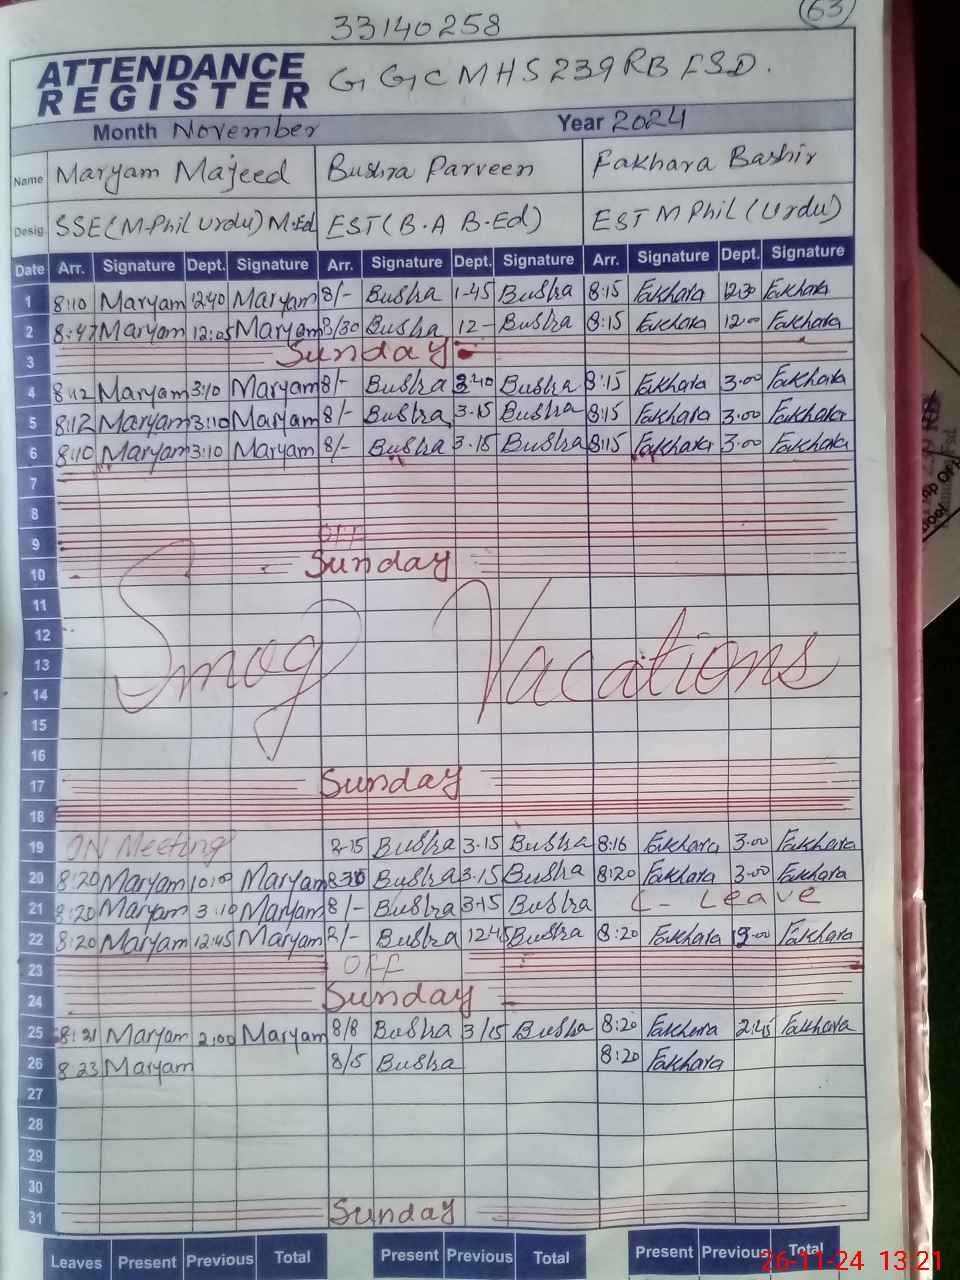 33140258
63
ATTENDANCE REGISTER
G G C M H S 239 RB FSD.
Month November Year 2024
Name Maryam Majeed Bushra Parveen Fakhara Bashir
Desig. SSE (M.Phil Urdu) M.Ed EST (B.A B.Ed) EST M Phil (Urdu)
Date Arr. Signature Dept. Signature Arr. Signature Dept. Signature Arr. Signature Dept. Signature
1 8:10 Maryam 12:40 Maryam 8/- Bushra 1-45 Bushra 8:15 Fakhara 12:30 Fakhara
2 8:47 Maryam 12:05 Maryam 8/30 Bushra 12- Bushra 8:15 Fakhara 12:00 Fakhara
3 Sunday
4 8:12 Maryam 3:10 Maryam 8/- Bushra Bushra 8:15 Fakhara 3:00 Fakhara
5 8:12 Maryam 3:10 Maryam 8/- Bushra 3.15 Bushra 8:15 Fakhara 3:00 Fakhara
6 8:10 Maryam 3:10 Maryam 8/- Bushra 3.15 Bushra 8:15 Fakhara 3:00 Fakhara
7
8
9 OFF
10 Sunday
11
12
13 Smog Vacations
14
15
16
17 Sunday
18
19 ON Meeting Bushra 3.15 Bushra 8:16 Fakhara 3:00 Fakhara
20 8:20 Maryam Maryam 8:30 Bushra 3.15 Bushra 8:20 Fakhara 3:00 Fakhara
21 8:20 Maryam 3:10 Maryam 8/- Bushra 3-15 Bushra C- Leave
22 8:20 Maryam 12:45 Maryam Bushra 12:45 Bushra 8:20 Fakhara Fakhara
23 OFF
24 Sunday
25 8:31 Maryam 2:00 Maryam 8/8 Bushra 3/15 Bushra 8:20 Fakhara 2:45 Fakhara
26 8:23 Maryam 8/5 Bushra 8:20 Fakhara
27
28
29
30
31 Sunday
Leaves Present Previous Total Present Previous Total Present Previous Total
26-11-24 13:21